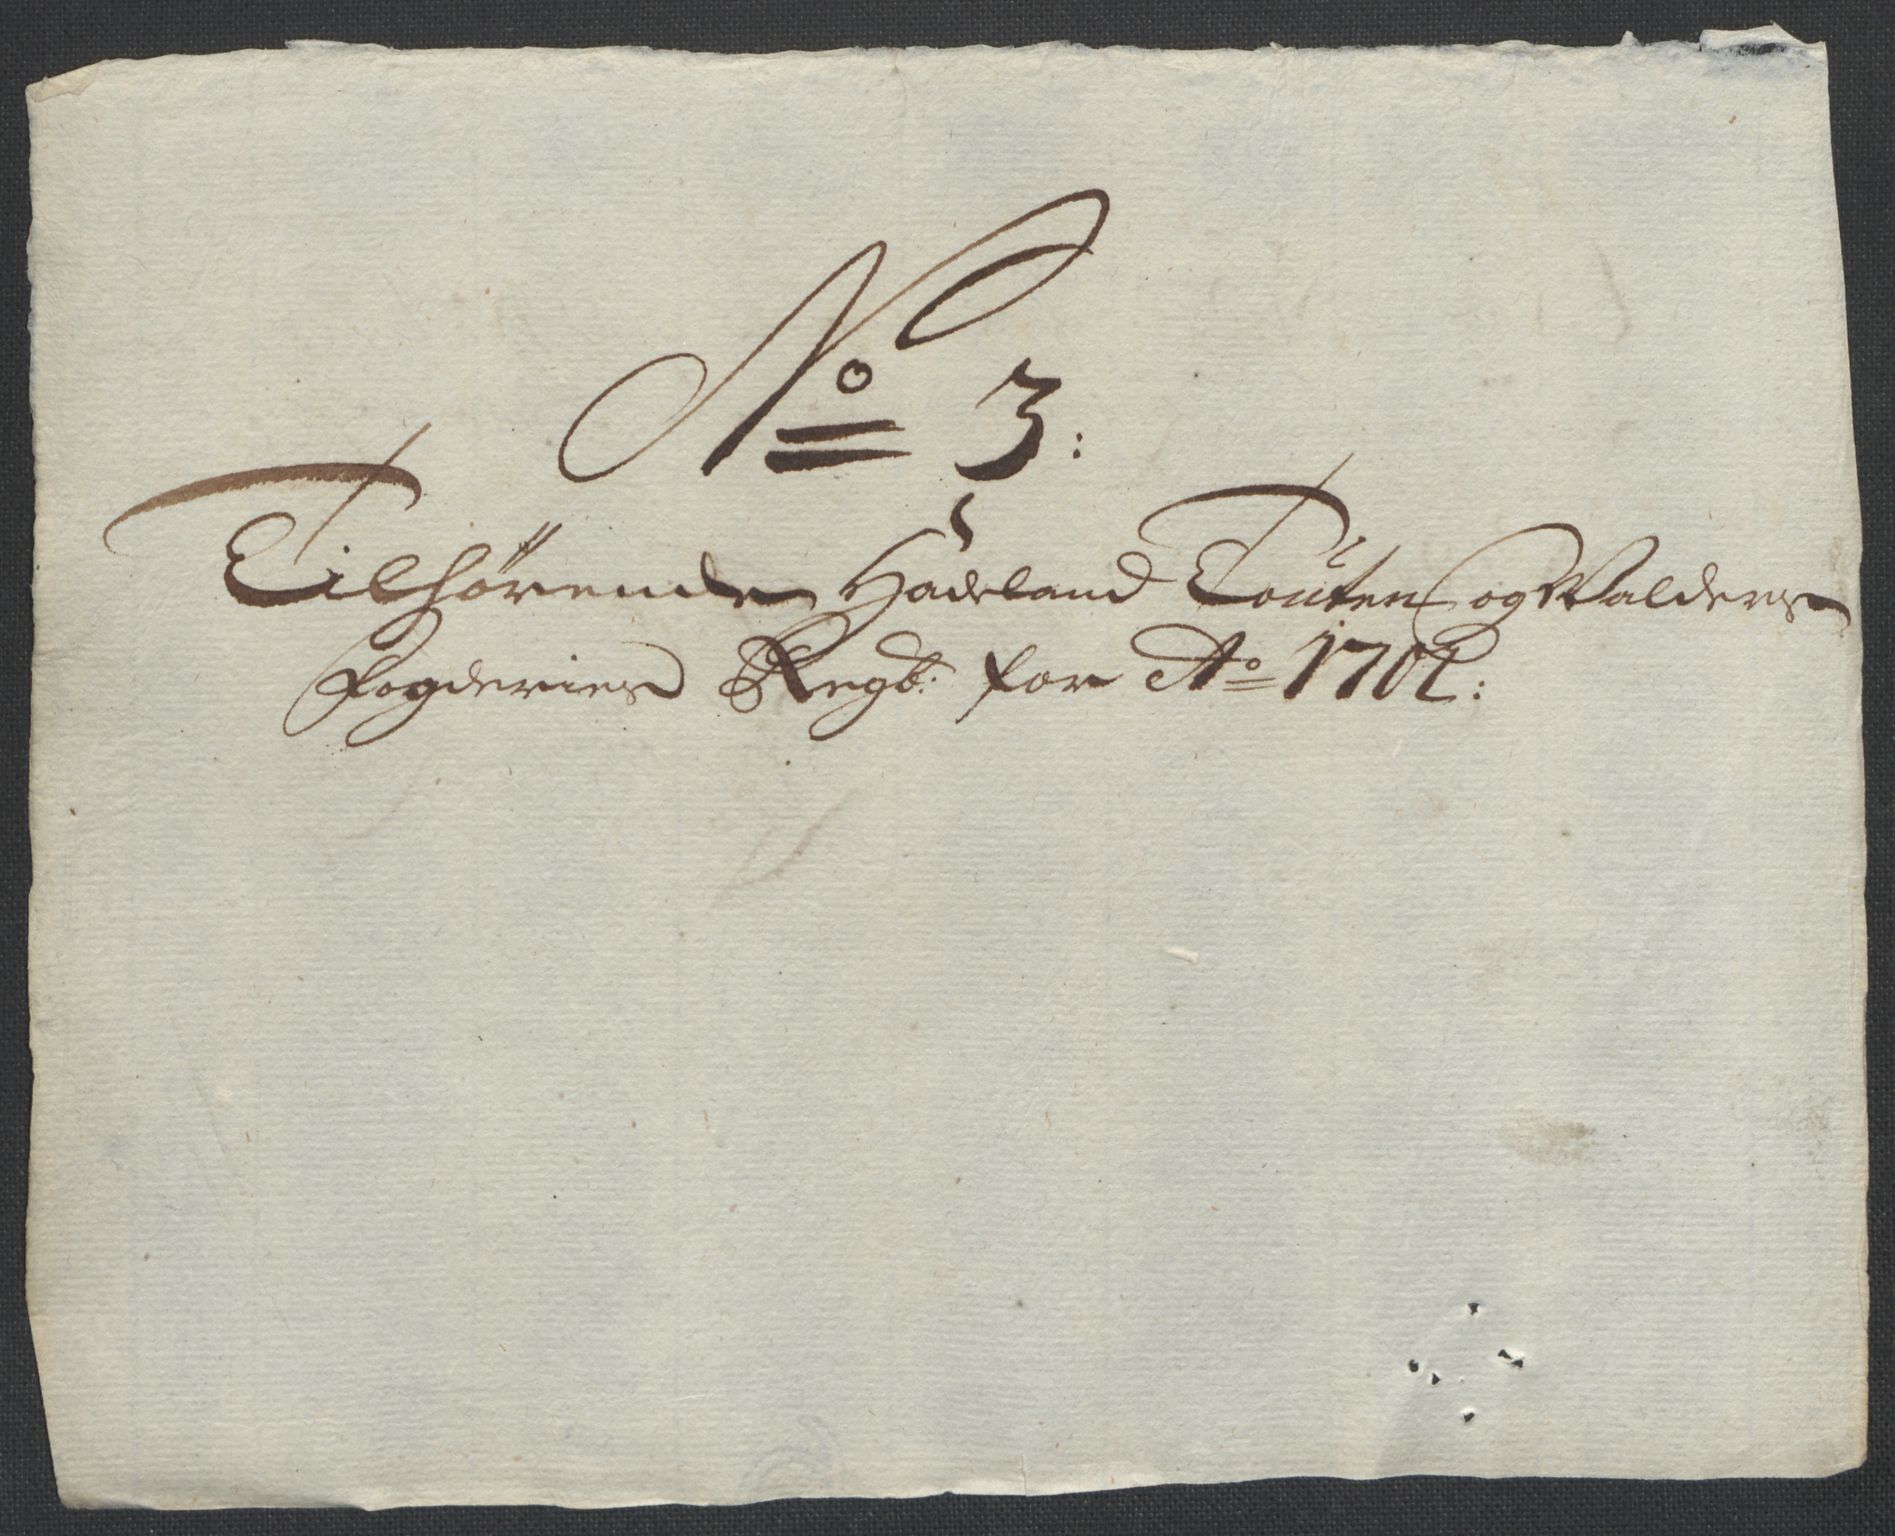 No 3:
Tilhørende Hadeland Touten og Walders
Fogderies Regb: for Ao 1702: